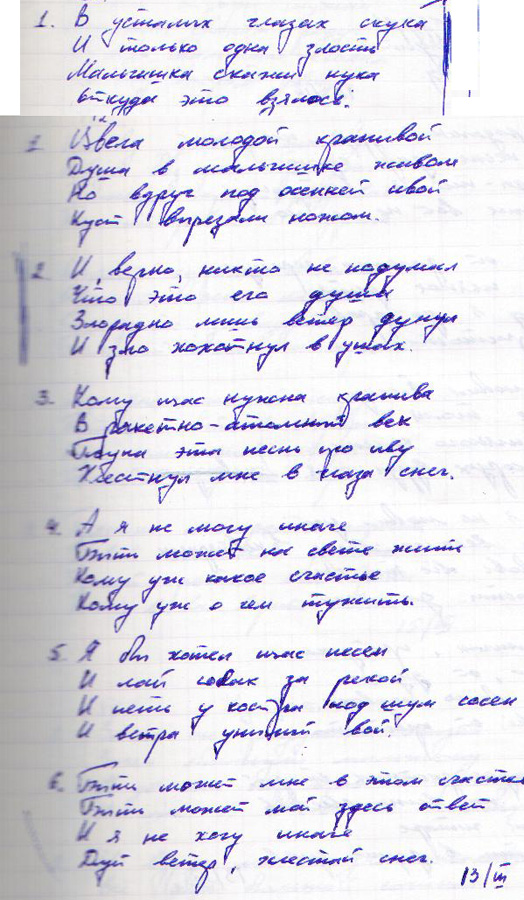 1. В усталых глазах скука
И только одна злость
Мальчишка скажи ну-ка
Откуда это взялось.
1. Цвела молодой крапивой
Душа в мальчишке живом
Но вдруг под осенней ивой
Куст вырезали ножом.
2. И верно, никто не подумал
Что это его душа
Злорадно лишь ветер дунул
И зло хохотнул в ушах.
3. Кому щас нужна крапива
В ракетно-атомный век
эта песнь про иву
Хлестнул мне в глаза снег.
4. А я не могу иначе
Быть может на свете жить
Кому уж какое счастье
Кому уж о чем тужить.
5. Я бы хотел щас песен
И лай собак за рекой
И петь у костра под шум сосен
И ветра унылый вой.
6. Быть может мне в этом счастье
Быть может мой здесь ответ
И я не хочу иначе
Дуй ветер, хлестай снег.
13/III